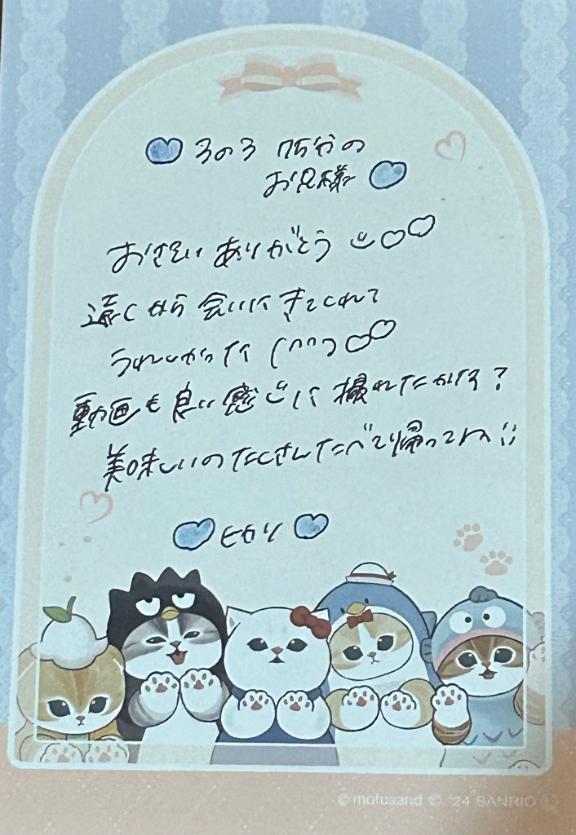 3の3 75分の
お兄様
お さそい ありがとう
遠くから 会いにきてくれて
うれしかった (^^)
動画も良い感じに 撮れたかな?
美味しいのたくさんたべて帰ってね!!
ヒカリ
©mofusand © '24 SANRIO